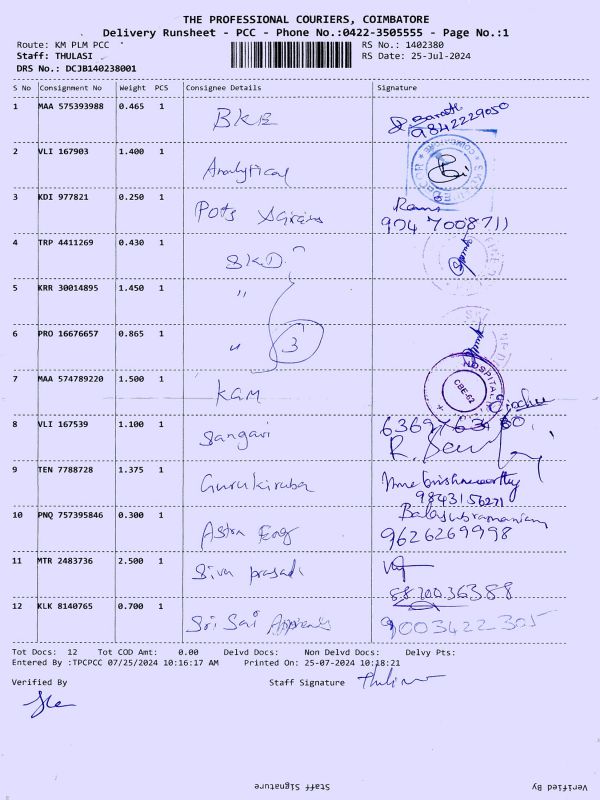 THE PROFESSIONAL COURIERS, COIMBATORE
Delivery Runsheet - PCC - Phone No.:0422-3505555 - Page No.:1
Route: KM PLM PCC RS No.: 1402380
Staff: THULASI RS Date: 25-Jul-2024
DRS No.: DCJB140238001
S No Consignment No Weight PCS Consignee Details Signature
1 MAA 575393988 0.465 1 BKE Barath
9842229050
2 VLI 167903 1.400 1 Analytical
3 KDI 977821 0.250 1 Pots Rani
9047008711
4 TRP 4411269 0.430 1 SKD
5 KRR 30014895 1.450 1 "
6 PRO 16676657 0.865 1 " 3
7 MAA 574789220 1.500 1 KGM HOSPITAL
CBE-62
8 VLI 167539 1.100 1 Sangavi
9 TEN 7788728 1.375 1 Gurukiruba
9843156271
10 PNQ 757395846 0.300 1 Astra Eng Balasubramaniam
9626269998
11 MTR 2483736 2.500 1 Siva prasad
8870036388
12 KLK 8140765 0.700 1 Sri Sai 9003422305
Tot Docs: 12 Tot COD Amt: 0.00 Delvd Docs: Non Delvd Docs: Delvy Pts:
Entered By :TPCPCC 07/25/2024 10:16:17 AM Printed On: 25-07-2024 10:18:21
Verified By Staff Signature
Staff Signature Verified By